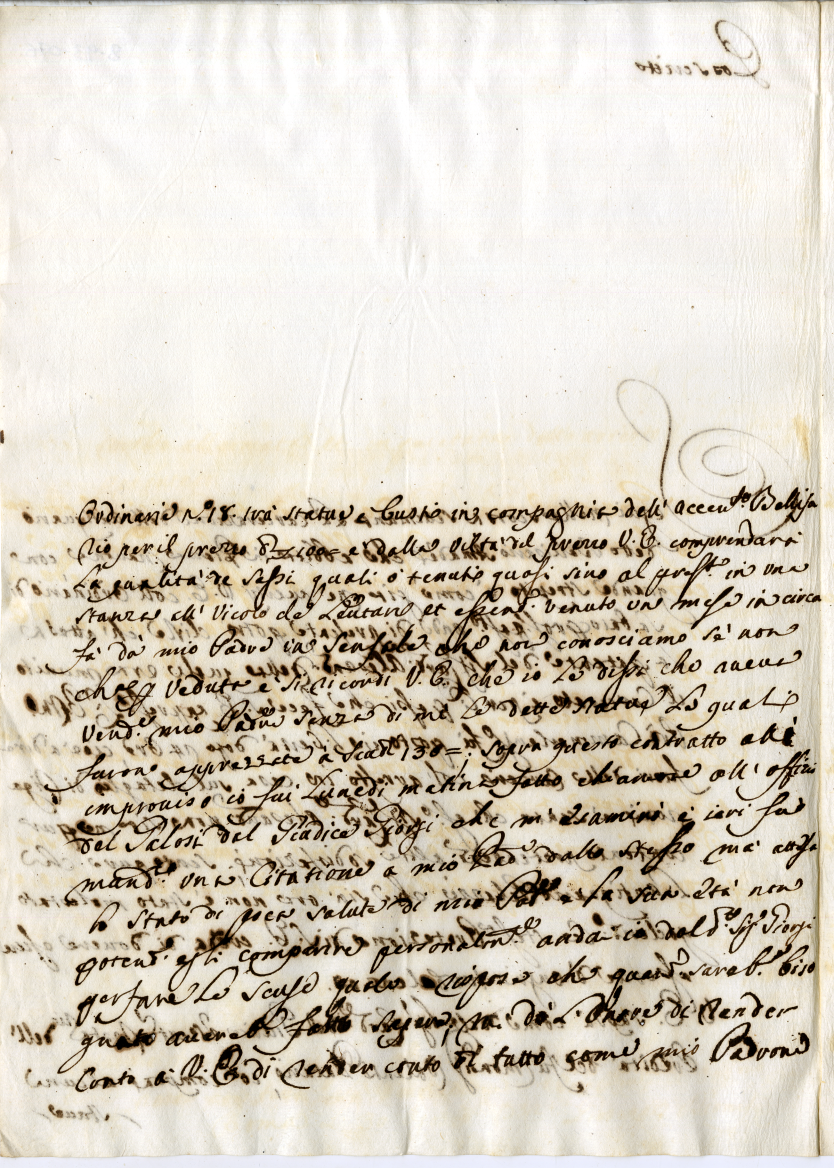 Ordinarie n.° 18. trà statue e busti in compagnia dell' accen.to Bellisa
rio per il prezzo di 100= e dalla viltà del prezzo V. E. comprenderà
La qualità de sassi quali ò tenuto quasi sino al pres.te in una
stanza all' Vicolo de Leutari et essend.° venuto un mese in circa
fà dà mio Padre un Sensale che non conosciamo sè non
che veduta e si ricordi V. E. che io Le dissi che aveva
vend.° mio Padre senza di me Le dette statue Le quali
furono apprezzate à Scudi 130=: sopra questo contratto all'
improviso io fui Lunedi matina fatto chiamare all' offitio
del Palosi dal Giudice Giorgi che m' esaminò e ieri fu
mand.ta una Citatione a mio Pad.e dallo stesso mà attesa
lo stato di poca salute di mio Pad.e e La sua età non
potend.° egli comparire personalm.te andai io dal d.° Sig.r Giorgi
per fare Le scuse quale rispose che quand.° sareb.e biso
gnato avereb.e fatto sapere, mi dò L' onore di render
Conto à V. E. di render conto di tutto come mio Padrone